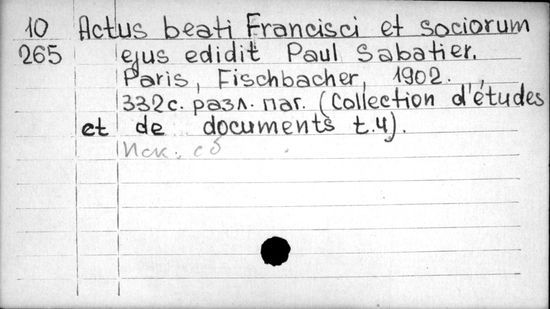 10 Actus beati Francisci et sociorum
265 ejus edidit Paul Sabatier.
Paris, Fischbacher, 1902.
332с. разл. паг. (Collection d'études
et de documents t.4).
Иск. сб